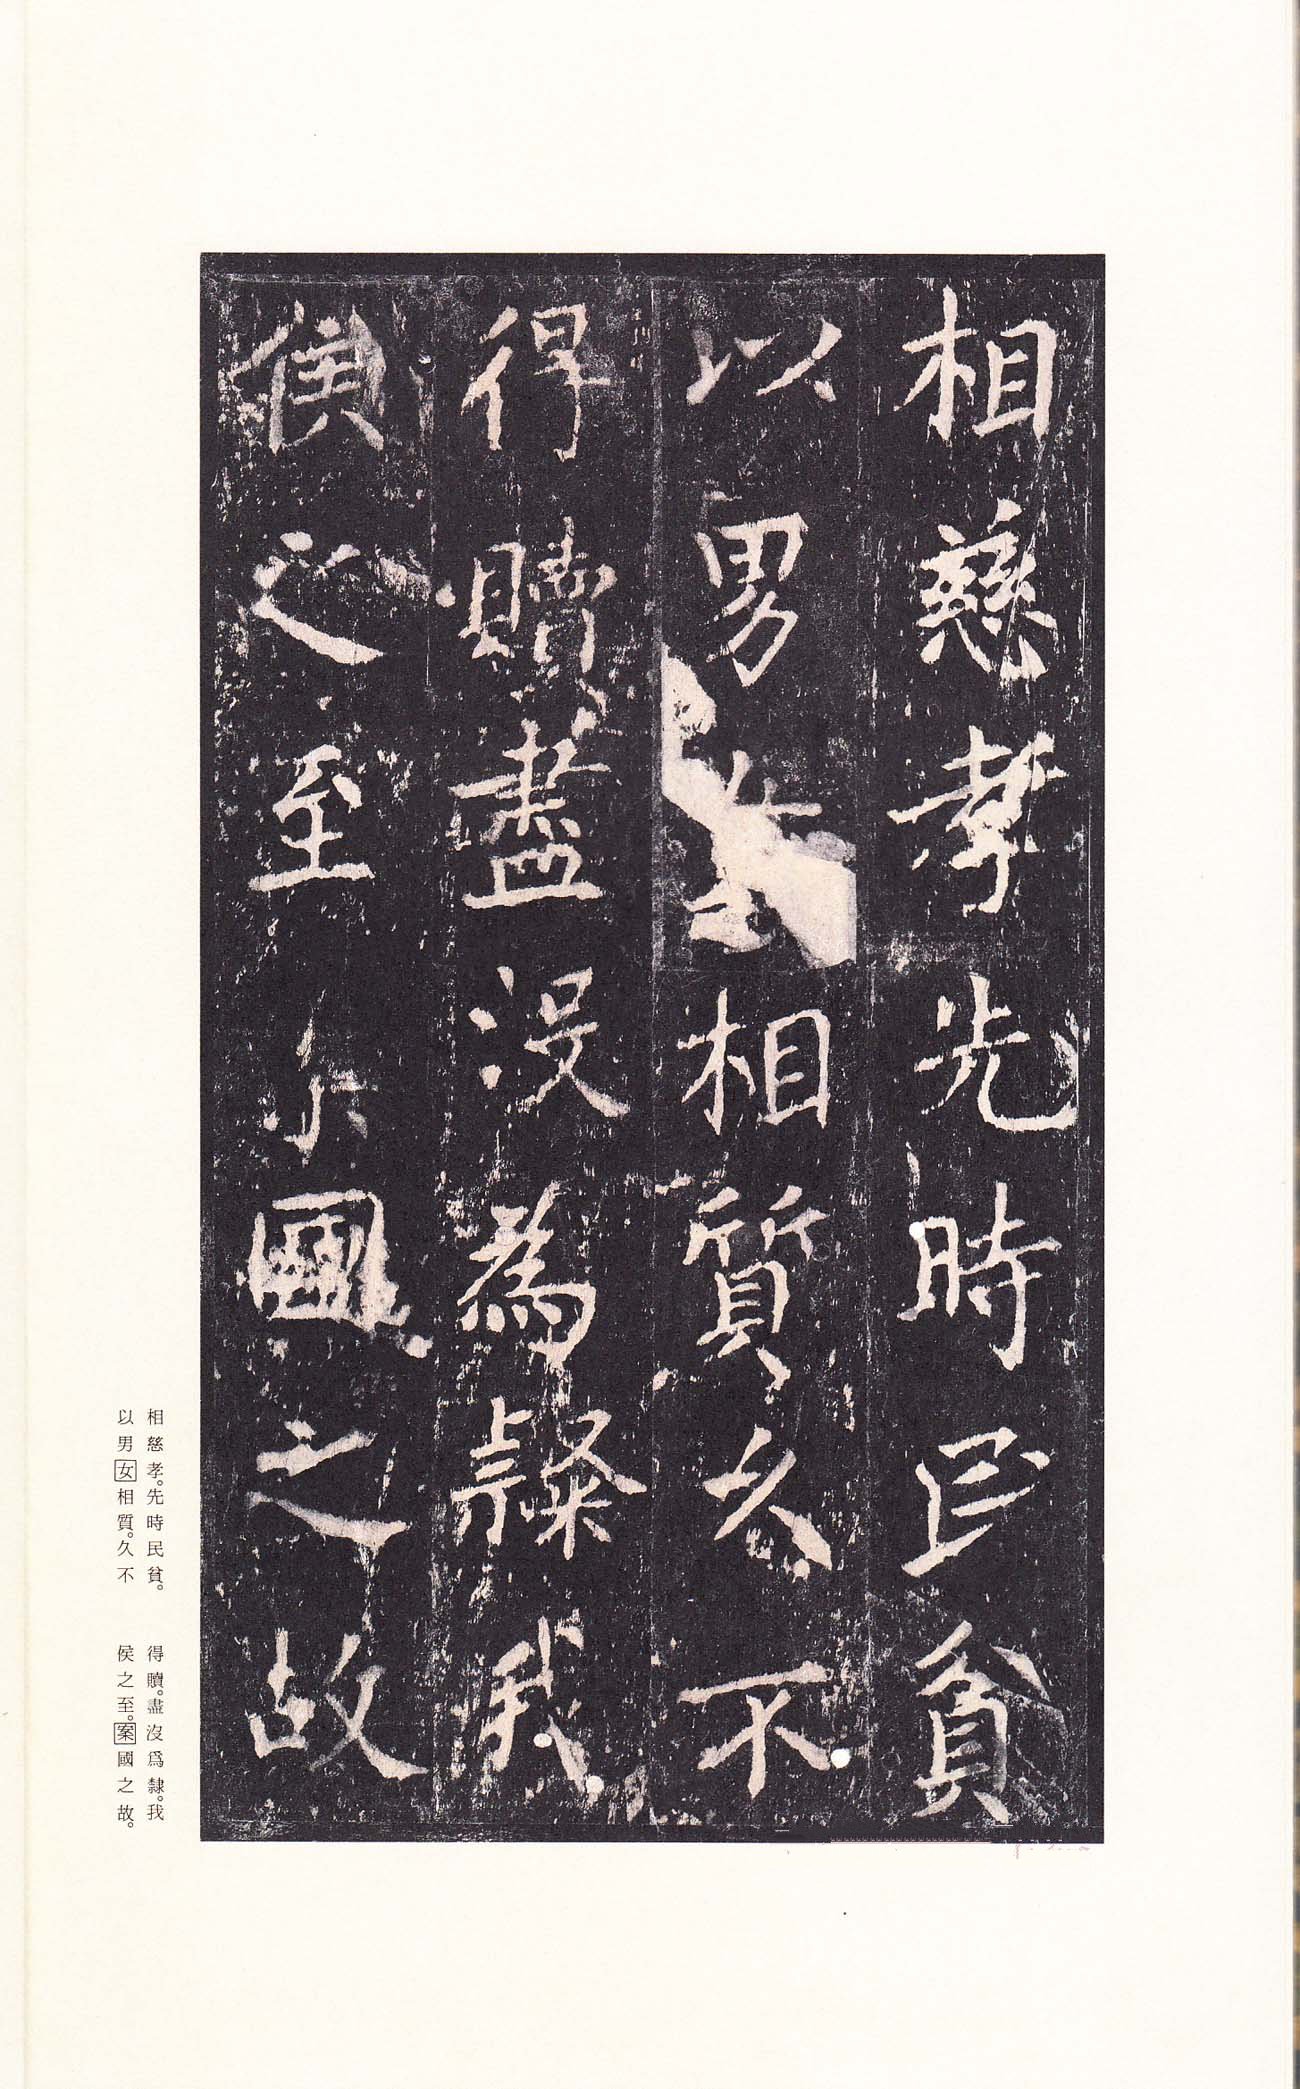 相慈孝先時民貧
以男女相質久不
得贖盡沒為隸我
侯之至案國之故
相慈孝。先時民貧。
以男女相質。久不
得贖。盡沒爲隸。我
侯之至。案國之故。